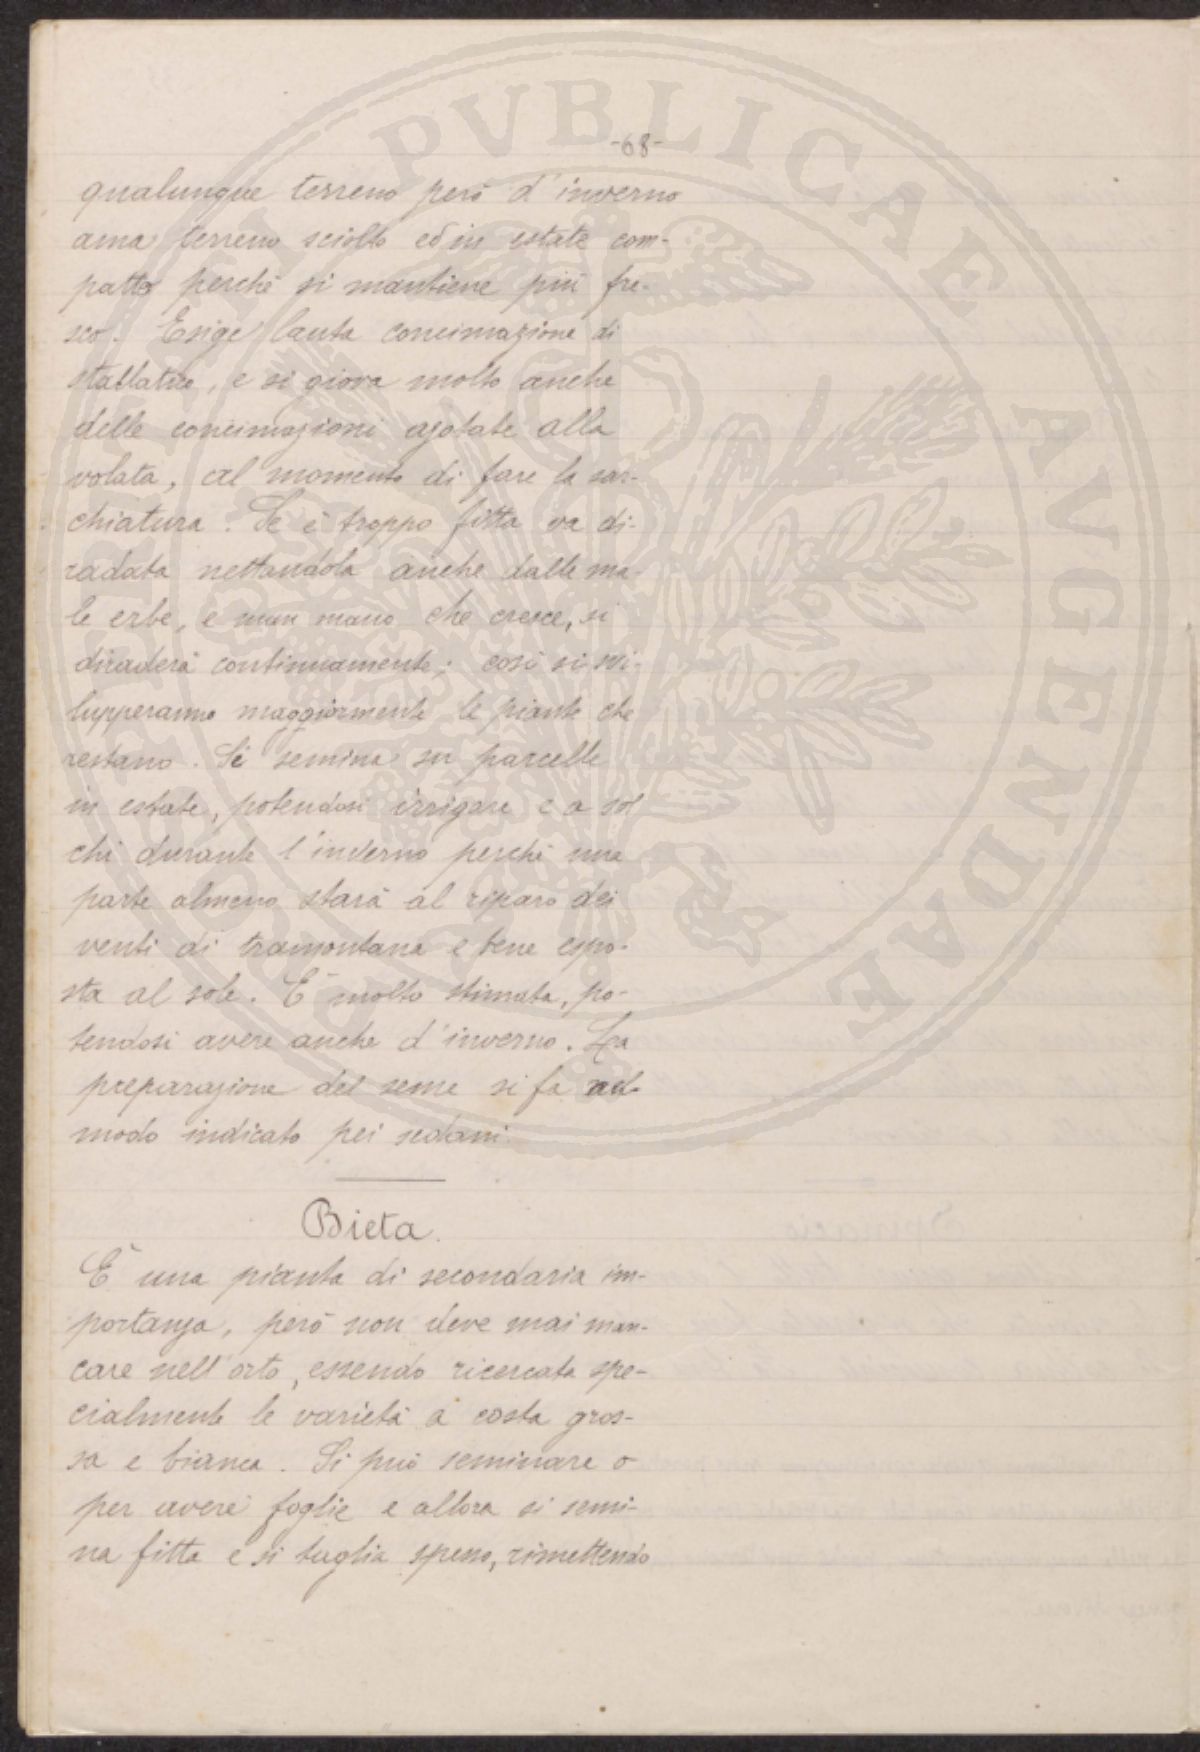 -68-
qualunque terreno però d'inverno
ama terreno sciolto ed in estate com-
patto perchè si mantiene più fre-
sco. Esige lauta concimazione di
stallatico, e si giova molto anche
delle concimazioni azotate alla
volata, al momento di fare la sar-
chiatura. Se è troppo fitta va di-
radata nettandola anche dalle ma-
le erbe, e man mano che cresce, si
diraderà continuamente; così si svi-
lupperanno maggiormente le piante che
restano. Si semina su parcelle
in estate, potendosi irrigare e a sol
chi durante l'inverno perchè una
parte almeno starà al riparo dei
venti di tramontana e bene espo-
sta al sole. È molto stimata, po-
tendosi avere anche d'inverno. La
preparazione del seme si fa nel
modo indicato pei sedani.
Bieta.
È una pianta di secondaria im-
portanza, però non deve mai man-
care nell'orto, essendo ricercata spe-
cialmente le varietà a costa gros-
sa e bianca. Si può seminare o
per avere foglie e allora si semi-
na fitta e si taglia spesso, rimettendo
PVBLICAE AVGENDAE